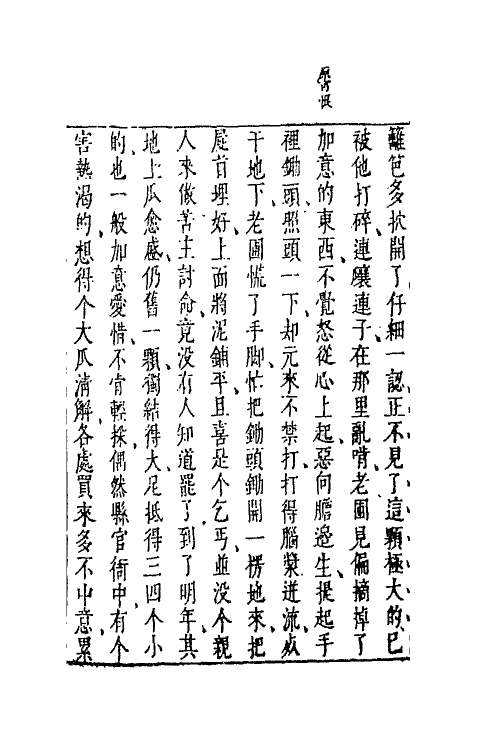 籬芭多扒開了仔細一認正不見了這顆極大的已
被他打碎連瓤連子在那里亂啃老圃見偏摘掉了
加意的東西不覺怒從心上起惡向膽邉生提起手
裡鋤頭照頭一下却元來不禁打打得腦漿迸流死
于地下老圃慌了手脚忙把鋤頭鋤開一楞地來把
屍首埋好上面將泥鋪平且喜是个乞丐並没个親
人來做苦主討命竟没有人知道罷了到了明年其
地上瓜愈盛仍舊一顆獨結得大足抵得三四个小
的也一般加意愛惜不肯輕採偶然縣官衙中有个
害熱渴的想得个大瓜清解各處買來多不中意累